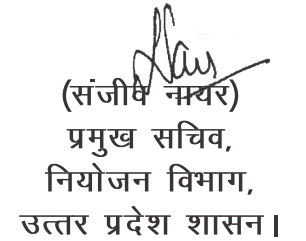 (संजीव नायर)
प्रमुख सचिव,
नियोजन विभाग,
उत्तर प्रदेश शासन।